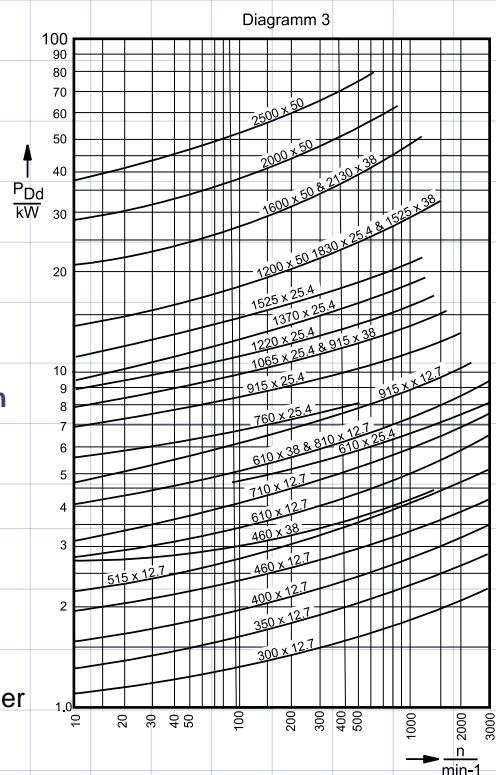 Diagramm 3
100
90
80
70
60
50
40
30
20
10
9
8
7
6
5
4
3
2
1.0
PDd
kW
2500 x 50
2000 x 50
1600 x 50 & 2130 x 38
1200 x 50 1830 x 25.4 & 1525 x 38
1525 x 25.4
1370 x 25.4
1220 x 25.4
1065 x 25.4 & 915 x 38
915 x 25.4
915 x x 12.7
760 x 25.4
610 x 38 & 810 x 12.7
610 x 25.4
710 x 12.7
610 x 12.7
460 x 38
515 x 12.7
460 x 12.7
400 x 12.7
350 x 12.7
300 x 12.7
10 20 30 40 50 100 200 300 400 500 1000 2000 3000
n
min-1
n
er